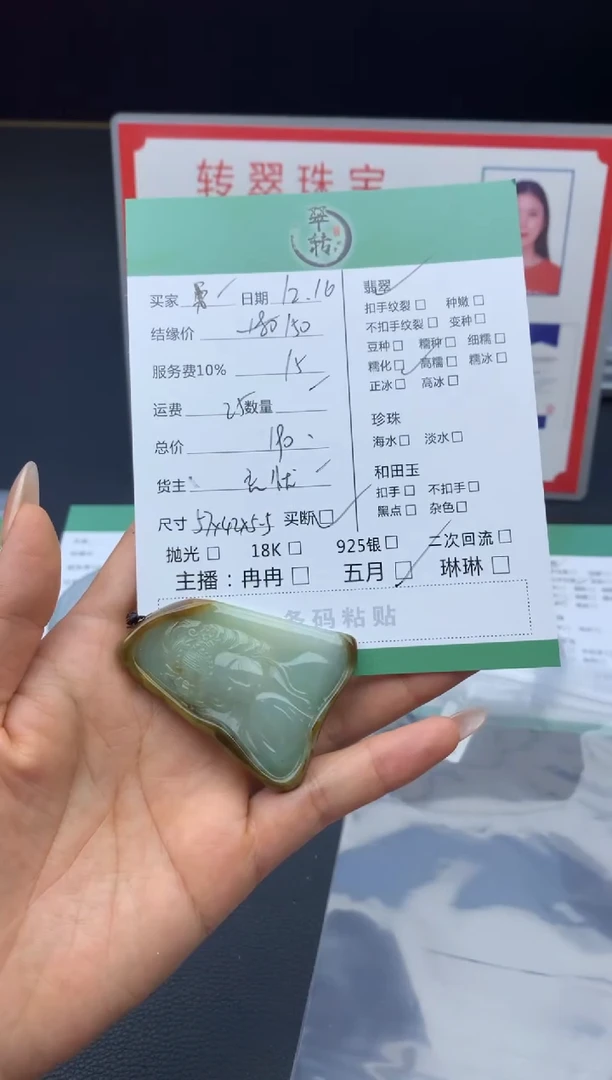 转翠珠宝
翠转
买家 日期 12.16
结缘价 180 150
服务费10% 15
运费 25 数量
总价 190
货主
尺寸 57x42x5.5 买断
翡翠
扣手纹裂 种嫩
不扣手纹裂 变种
豆种 糯种 细糯
糯化 高糯 糯冰
正冰 高冰
珍珠
海水 淡水
和田玉
扣手 不扣手
黑点 杂色
抛光 18K 925银 二次回流
主播：冉冉 五月 琳琳
条码粘贴